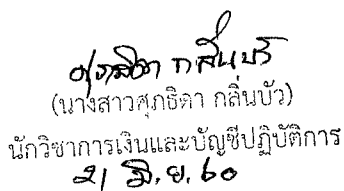 ศุภธิดา กลิ่นบัว
(นางสาวศุภธิดา กลิ่นบัว)
นักวิชาการเงินและบัญชีปฏิบัติการ
21 มิ.ย. 60